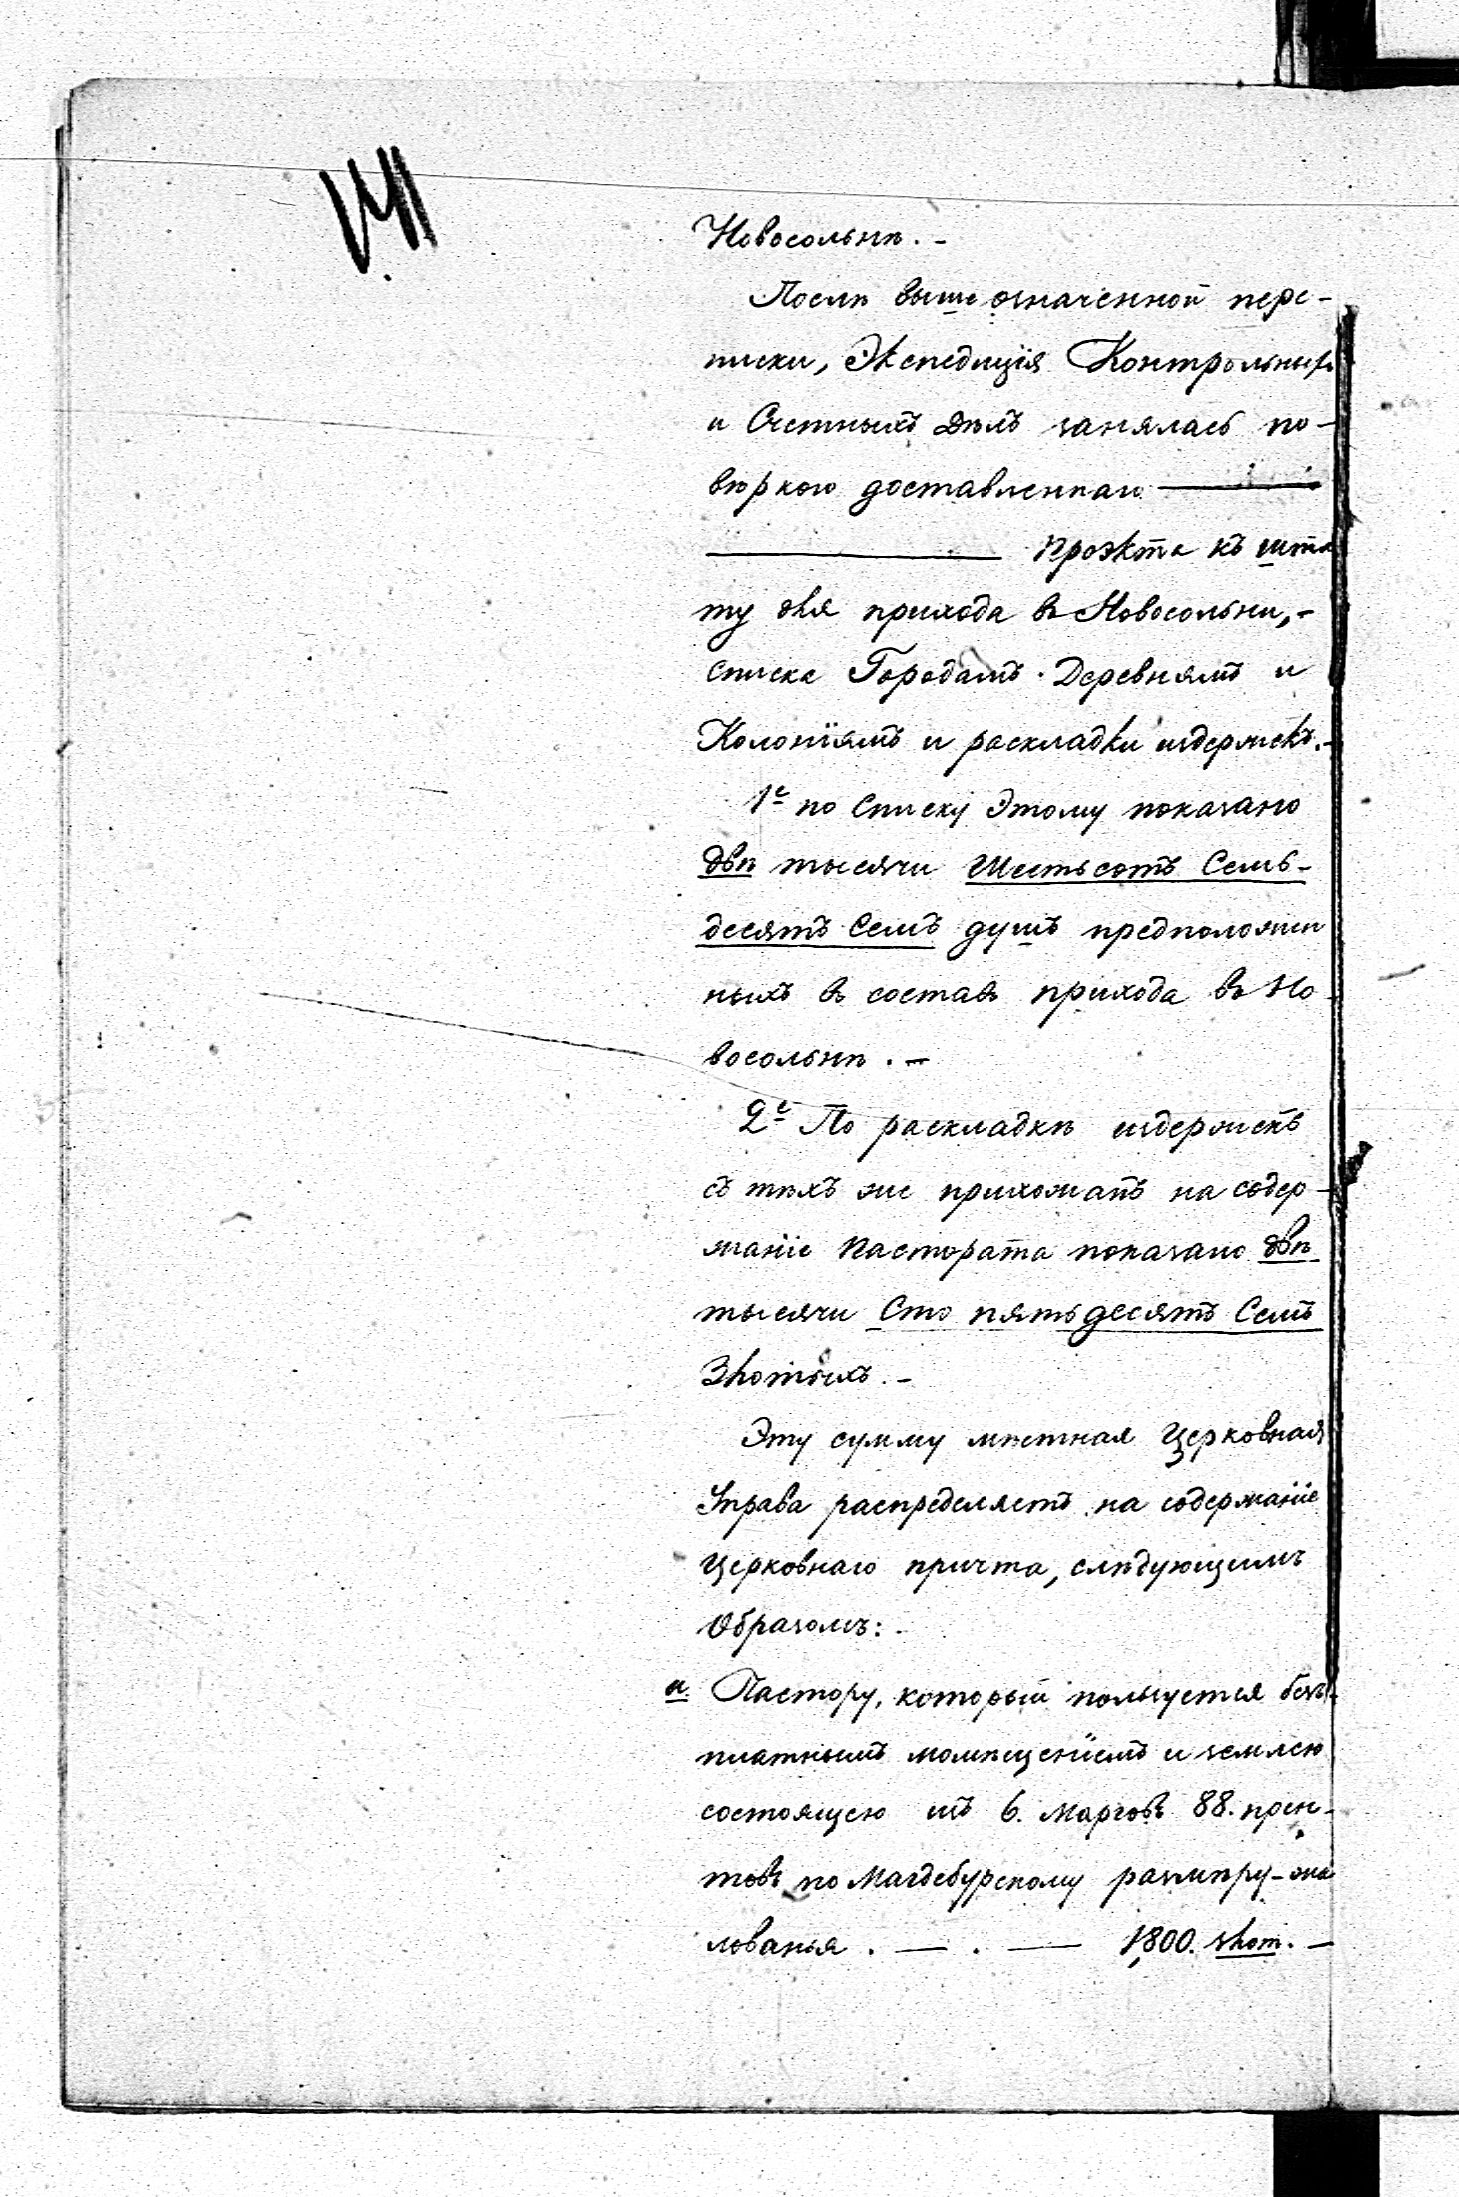 Новосольнѣ. -
Послѣ выше означенной пере-
писки, Экспедиція Контрольныхъ
и Счетныхъ Дѣлъ занялась по-
вѣркою доставленнаго
Проэкта къ шта
ту для прихода въ Новосольни, -
списка Городамъ. Деревнямъ и
Колоніямъ и раскладки издержекъ. -
1е по Списку Этому показано
двѣ тысячи Шестьсотъ Семь-
десятъ Семъ душъ предположен
ныхъ въ составъ прихода въ Но-
восольнѣ. -
2е По раскладкѣ издержекъ
съ тѣхъ же прихожанъ на содер-
жаніе Пастората показано двѣ
тысячи Сто пятьдесятъ Семъ
Злотыхъ. -
Эту сумму мѣстная Церковная
Управа распределяетъ на содержаніе
Церковнаго причта, слѣдующимъ
Образомъ: -
а. Пастору, который пользуется без-
платнымъ помѣщеніемъ и землею
состоящею изъ 6. Марговъ 88. прен-
товъ по Магдебурскому размѣру - жа
лованья . — . — 1,800. злот. -